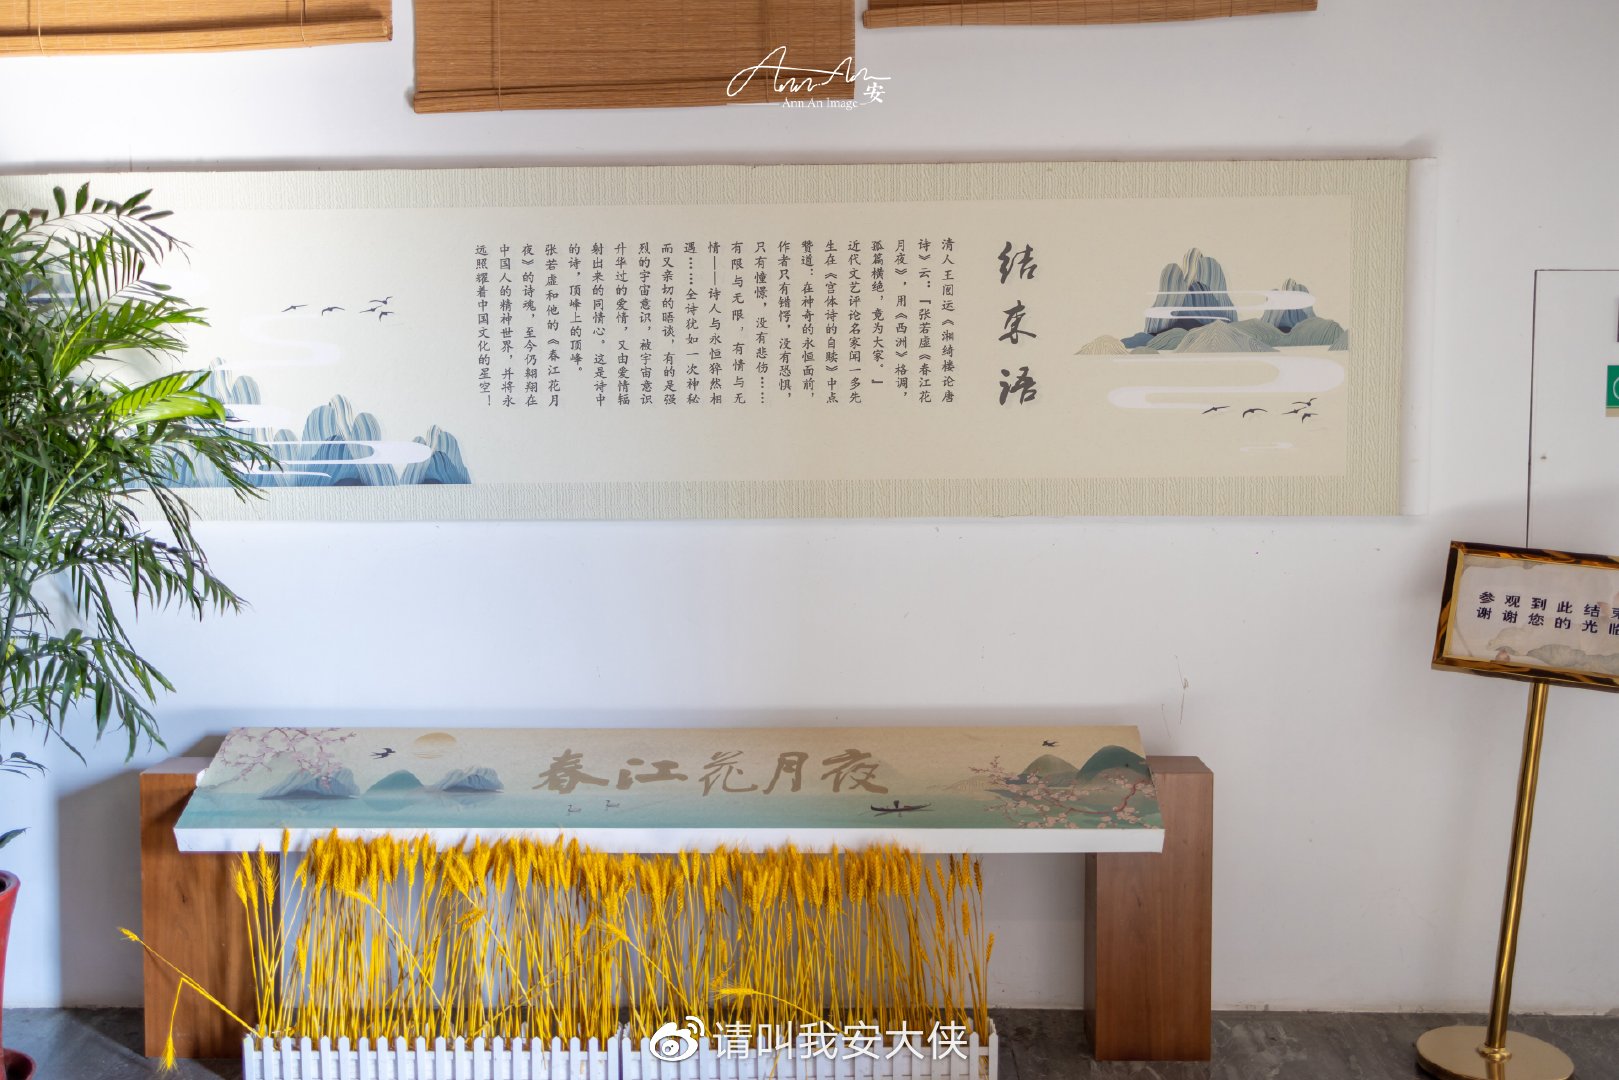 Ann An
Ann An Image 安
结束语
清人王闿运《湘绮楼论唐
诗》云：「张若虚《春江花
月夜》，用《西洲》格调，
孤篇横绝，竟为大家。」
近代文艺评论名家闻一多先
生在《宫体诗的自赎》中点
赞道：在神奇的永恒面前，
作者只有错愕，没有恐惧，
只有憧憬，没有悲伤……
有限与无限，有情与无
情——诗人与永恒猝然相
遇……全诗犹如一次神秘
而又亲切的晤谈，有的是强
烈的宇宙意识，被宇宙意识
升华过的爱情，又由爱情辐
射出来的同情心。这是诗中
的诗，顶峰上的顶峰。
张若虚和他的《春江花月
夜》的诗魂，至今仍翱翔在
中国人的精神世界，并将永
远照耀着中国文化的星空！
参观到此结束
谢谢您的光临
春江花月夜
请叫我安大侠